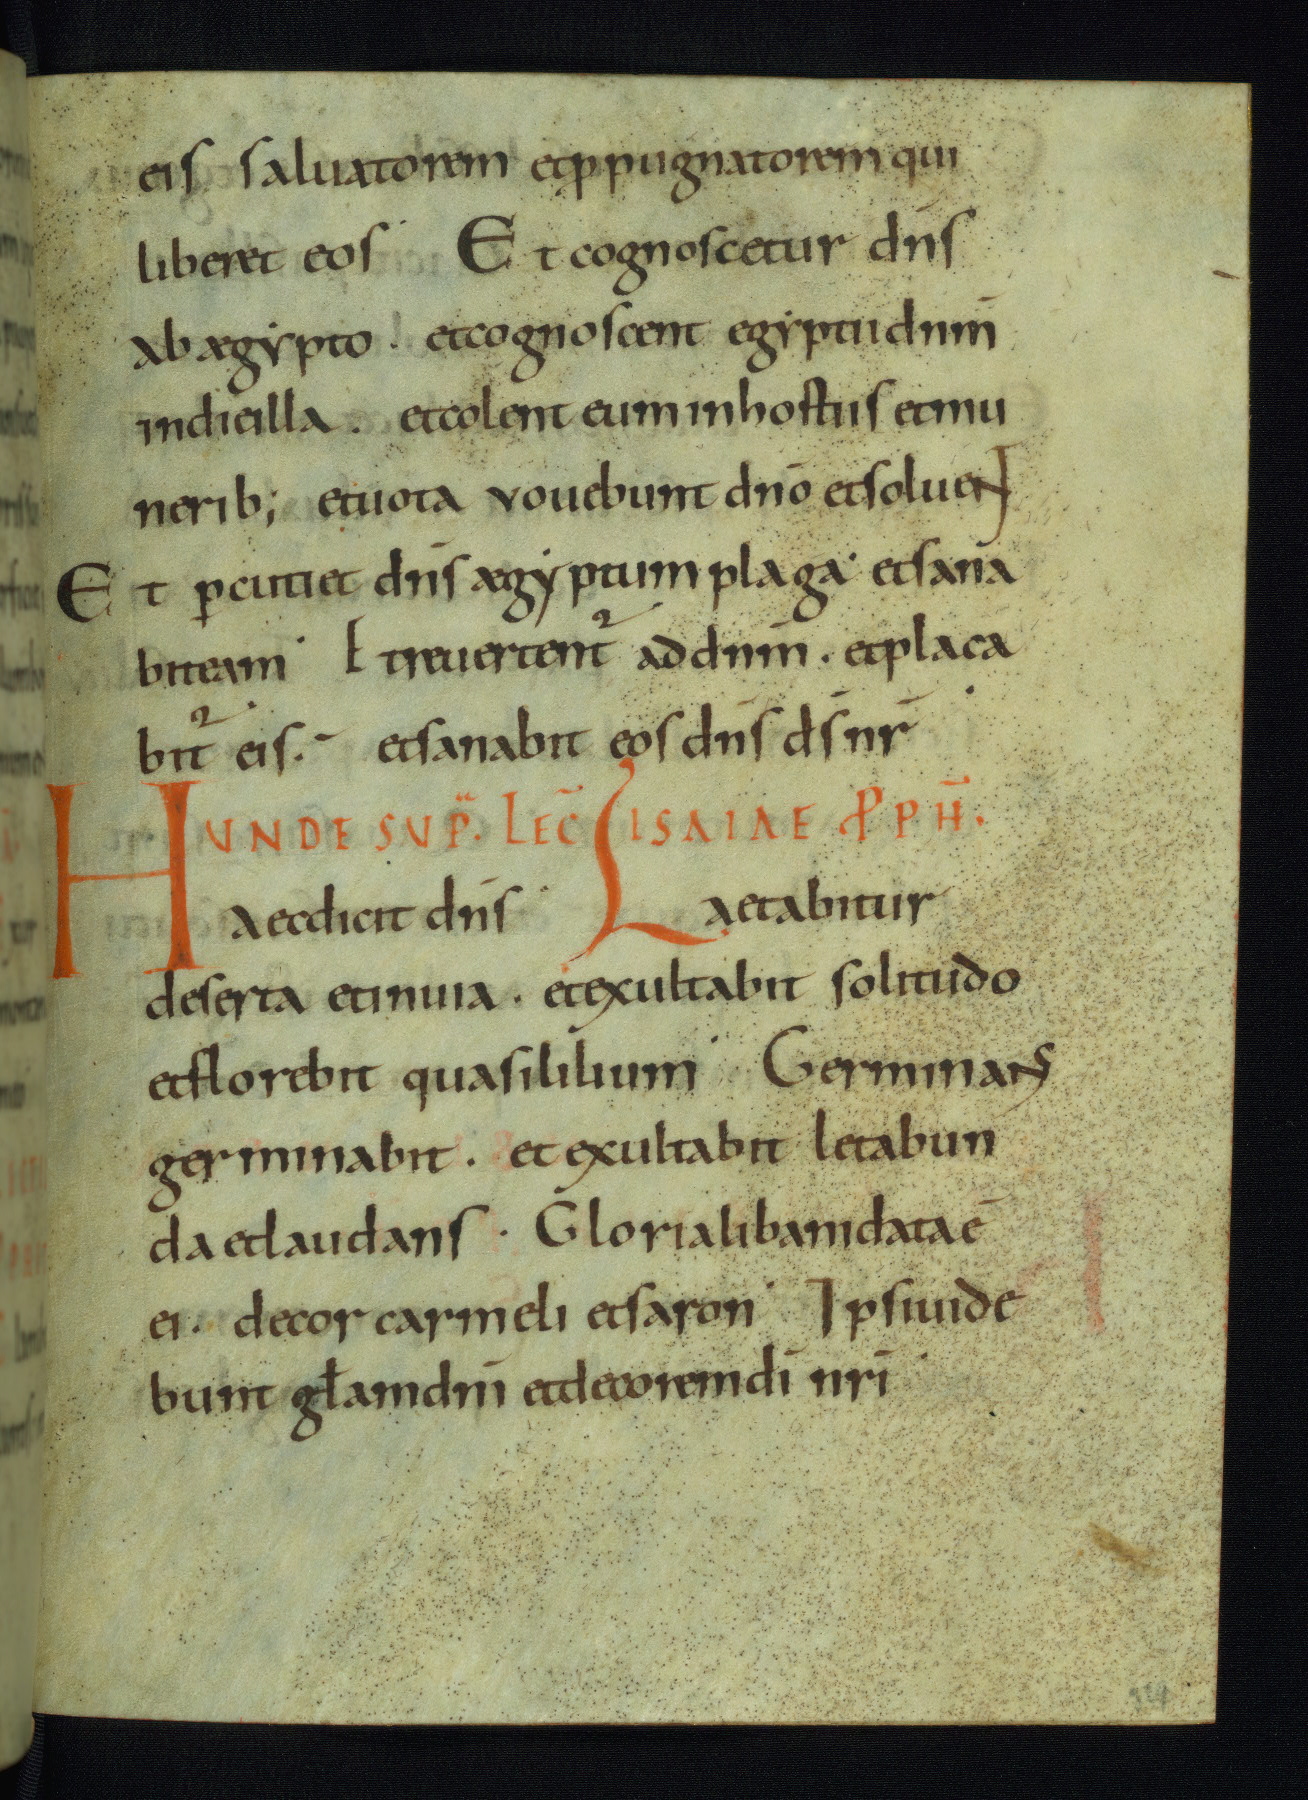 eis saluatorem et ꝓpugnatorem qui
liberet eos· Et cognoscetur dn̄s
ab ægẏpto· et cognoscent egẏptii dnm̄
in die illa. et colent eum in hostiis et mu
nerib; et uota vouebunt dn̄o et soluenT
Et ꝑcutiet dn̄s ægẏptum plaga· et sana
bit eam· Et reuertent᷑ ad dnm̄. et placa
bit᷑ eis.- et sanabit eos dn̄s ds̄ nr̄
UNDE SUP̄. LEC̄ ISAIAE P̱PH̄.
Haec dicit dn̄s· Laetabitur
deserta et inuia. et exultabit solitudo
et florebit quasi lilium· Germinans
germinabit. et exultabit letabun
da et laudans. Gloria libani data ē
ei. decor carmeli et saron· Ipsi uide
bunt gƚam dnī et decorem dī nrī·